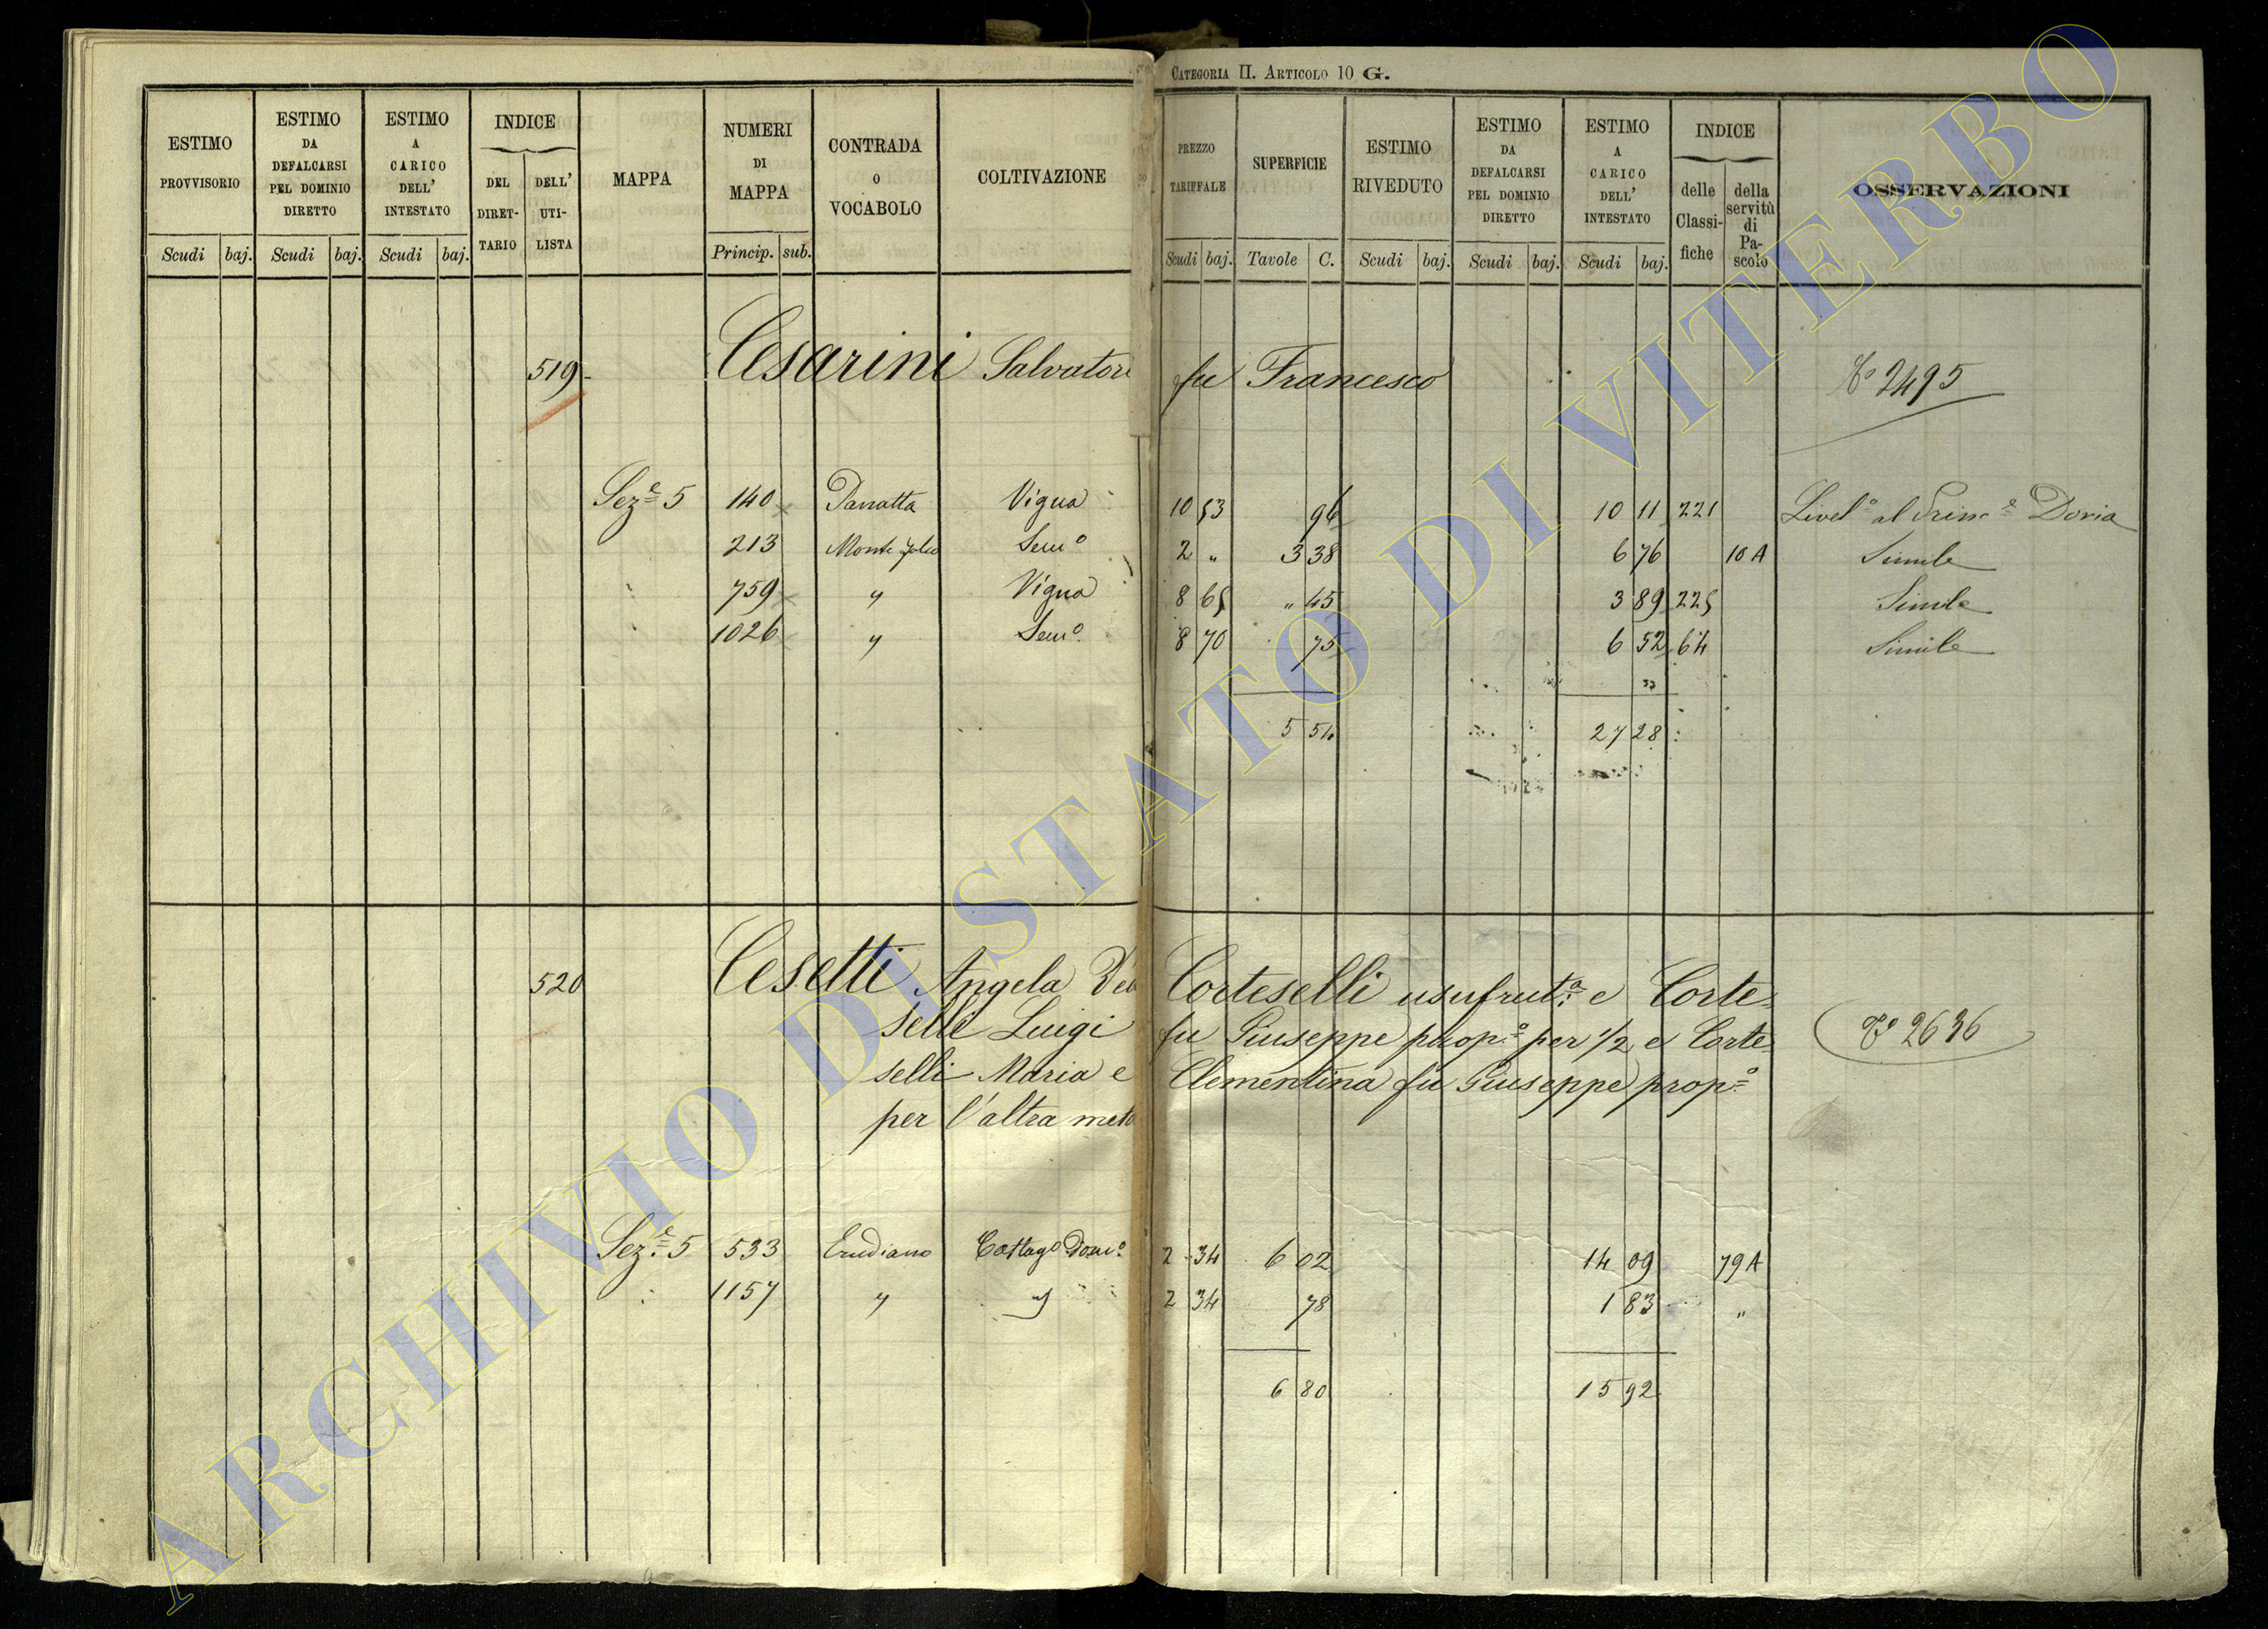 CATEGORIA II. ARTICOLO 10 G.
ESTIMO PROVVISORIO Scudi baj.
ESTIMO DA DEFALCARSI PEL DOMINIO DIRETTO Scudi baj.
ESTIMO A CARICO DELL' INTESTATO Scudi baj.
INDICE DEL DIRETTARIO DELL' UTILISTA
MAPPA
NUMERI DI MAPPA Princip. sub.
CONTRADA O VOCABOLO
COLTIVAZIONE
PREZZO TARIFFALE Scudi baj.
SUPERFICIE Tavole C.
ESTIMO RIVEDUTO Scudi baj.
ESTIMO DA DEFALCARSI PEL DOMINIO DIRETTO Scudi baj.
ESTIMO A CARICO DELL' INTESTATO Scudi baj.
INDICE delle Classifiche della servitù di Pascolo
OSSERVAZIONI
519 Cesarini Salvatore fu Francesco 2495
Seze 5 140 Vigna 10 53 96 10 11 221 Livelo al Prine Doria
213 Monte Semo 2 " 3 38 6 76 10 A Simile
759 " Vigna 8 65 " 45 3 89 225 Simile
1026 " Semo 8 70 75 6 52 64 Simile
5 54 27 28
520 Cesetti Angela Ved Corteselli usufruta e Corte
selli Luigi fu Giuseppe propo per 1/2 e Corte 2636
selli Maria e Clementina fu Giuseppe propo
per l'altra metà
Seze 5 533 Castago Domo 2 34 6 02 14 09 79 A
1157 " " 2 34 78 1 83 "
6 80 15 92
ARCHIVIO DI STATO DI VITERBO